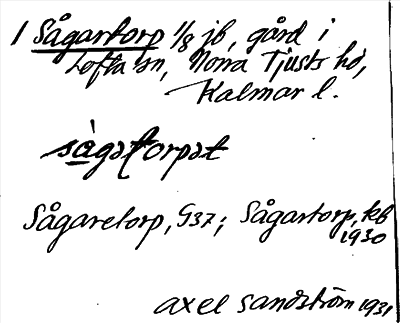 1 Sågartorp 1/8 jb, gård i
Lofta sn, Norra Tjusts hd,
Kalmar l.
sàgatorpət
Sågaretorp, G37; Sågartorp, kb
1930
axel sandström 1931